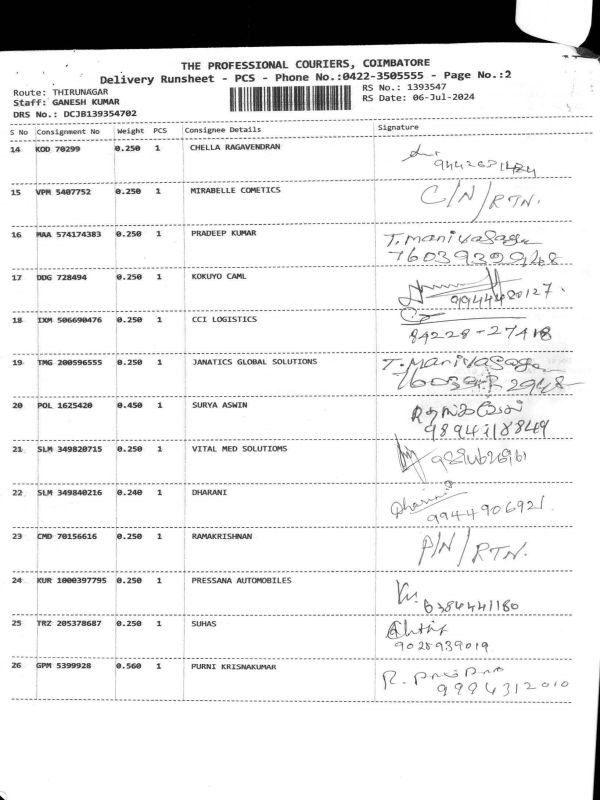 THE PROFESSIONAL COURIERS, COIMBATORE
Delivery Runsheet - PCS - Phone No.:0422-3505555 - Page No.:2
Route: THIRUNAGAR RS No.: 1393547
Staff: GANESH KUMAR RS Date: 06-Jul-2024
DRS No.: DCJB139354702
S No Consignment No Weight PCS Consignee Details Signature
14 KOD 70299 0.250 1 CHELLA RAGAVENDRAN
15 VPM 5407752 0.250 1 MIRABELLE COMETICS C/N/RTN.
16 MAA 574174383 0.250 1 PRADEEP KUMAR T. Manivasaga
17 DDG 728494 0.250 1 KOKUYO CAML 9944420127.
18 IXM 506690476 0.250 1 CCI LOGISTICS
84228-27418
19 TMG 200596555 0.250 1 JANATICS GLOBAL SOLUTIONS T. Manivasaga
20 POL 1625420 0.450 1 SURYA ASWIN
21 SLM 349820715 0.250 1 VITAL MED SOLUTIOMS
22 SLM 349840216 0.240 1 DHARANI Dharani
9944906921
23 CMD 70156616 0.250 1 RAMAKRISHNAN P/N/RTN.
24 KUR 1000397795 0.250 1 PRESSANA AUTOMOBILES
6384441180
25 TRZ 205378687 0.250 1 SUHAS
9028939019
26 GPM 5399928 0.560 1 PURNI KRISNAKUMAR
9994312010